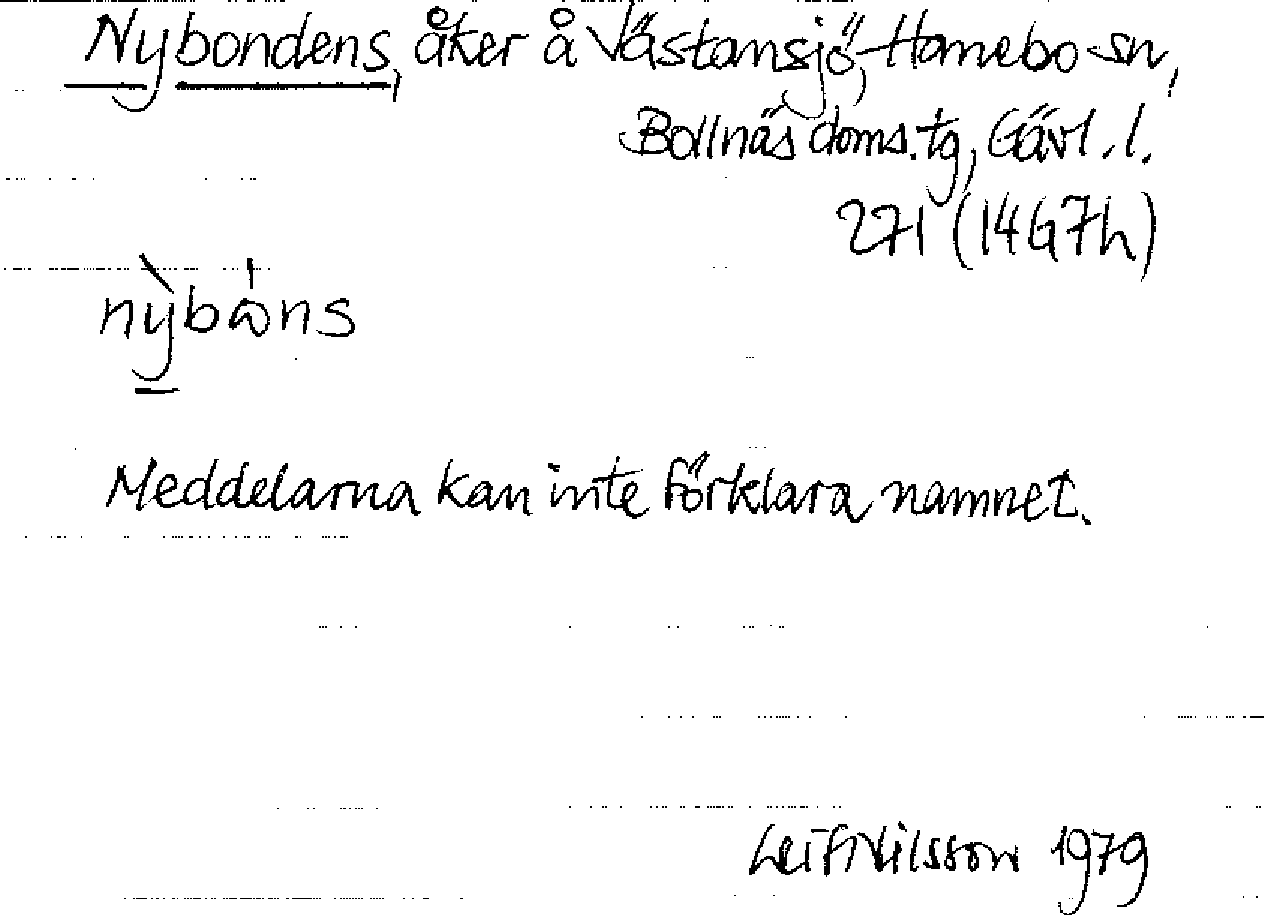 Nybondens, åker å Västansjö, Hanebo sn,
Bollnäs doms.tg, Gävl. l.
271 (14G7h)
nỳbω̍ns
Meddelarna kan inte förklara namnet.
Leif Nilsson 1979